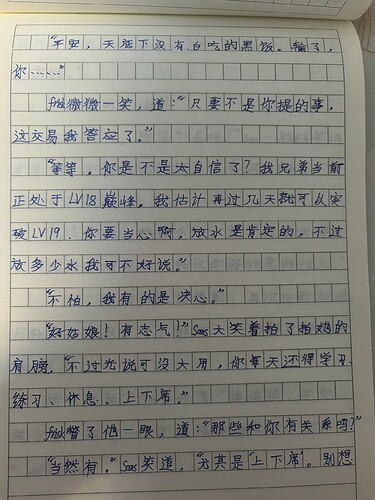 "平安，天涯下没有白吃的黑饭。输了，
你……"
微微一笑，道："只要不是你提的事，
这交易我答应了。"
"等等，你是不是太自信了？我兄弟当前
正处于LV18巅峰。我估计再过几天就可以突
破LV19.你要当心啊，放水是肯定的，不过
放多少水我可不好说。"
"不怕，我有的是决心。"
"好姑娘！有志气！"大笑着拍了拍的
肩膀，"不过光说可没大用，你每天还得学习、
练习、休息、上下席。"
瞥了他一眼，道："那些和你有关系吗？"
"当然有。"笑道，"尤其是'上下席'。别想